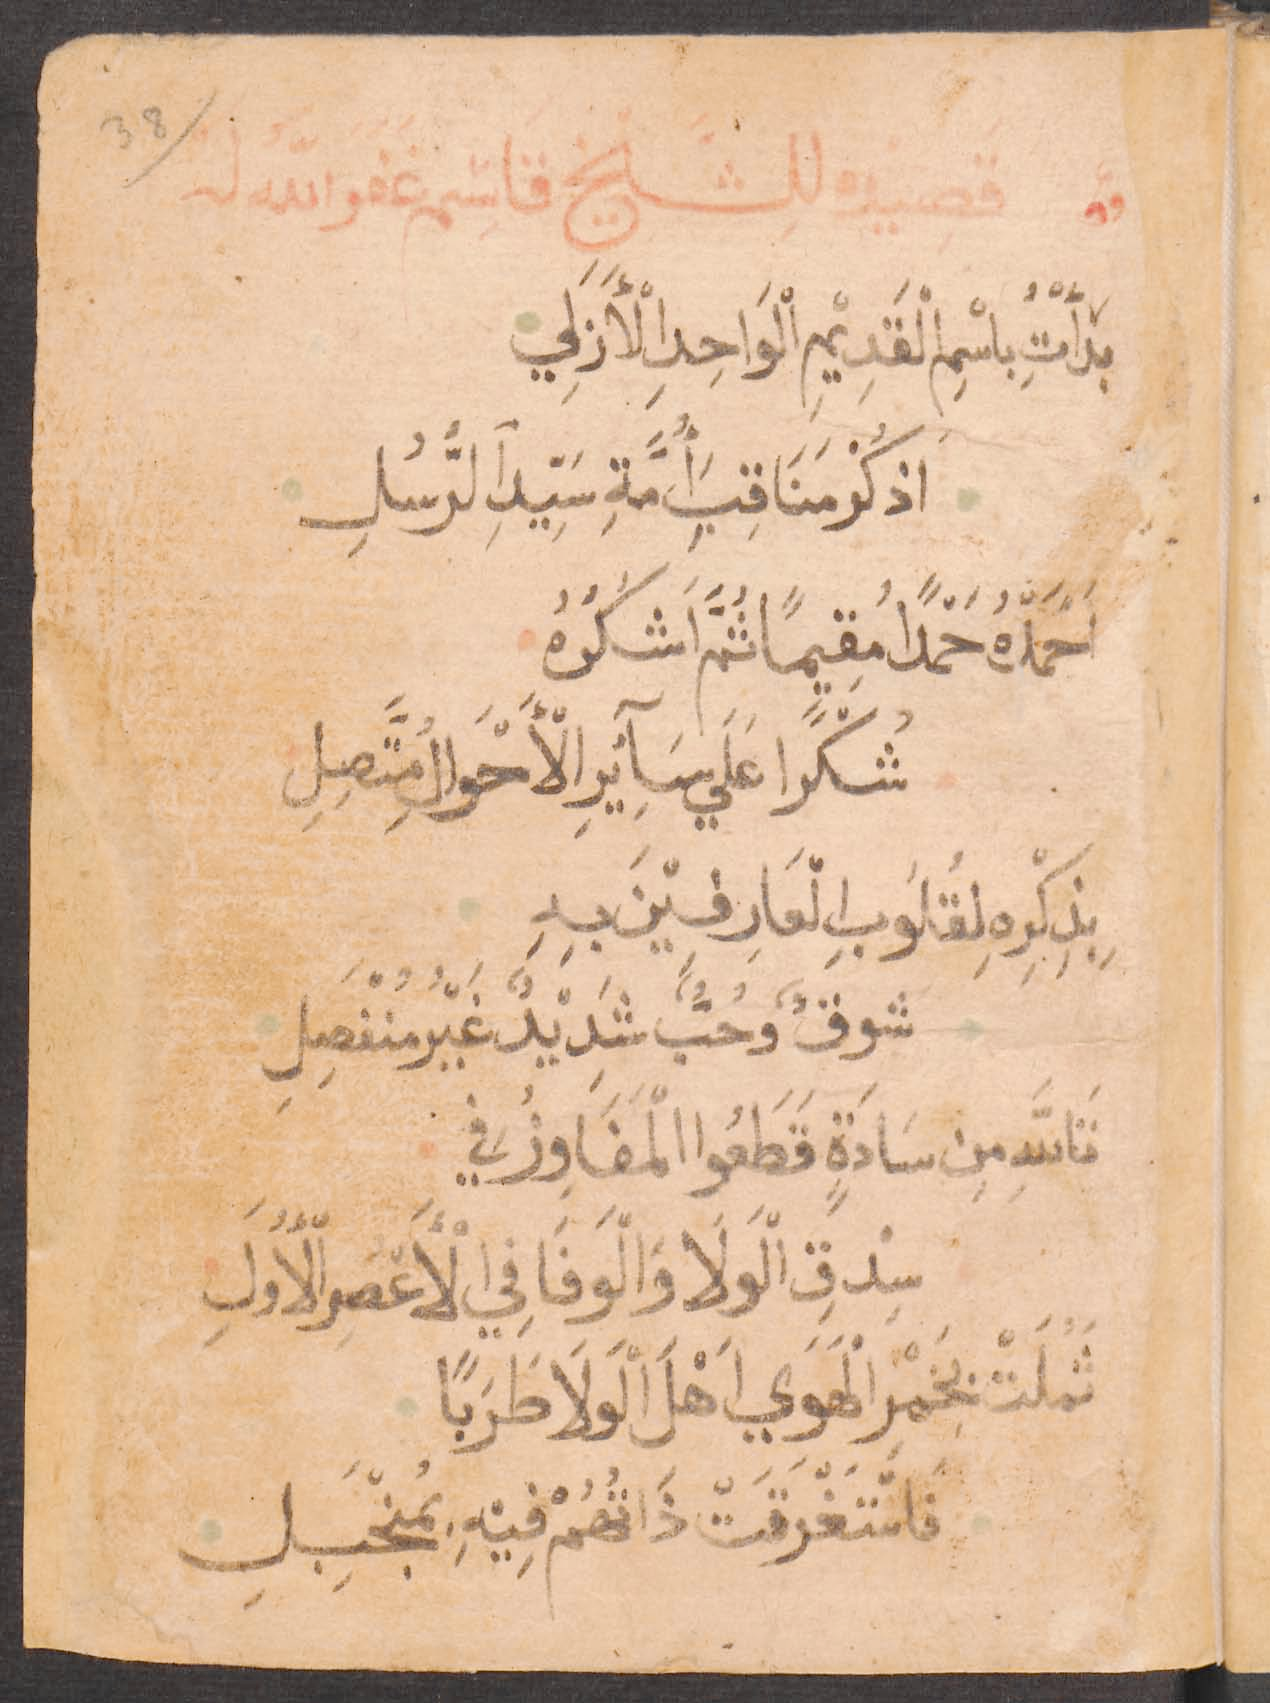 38
قَصِيْدِه لِلشَّيْخ قَاسِم غَفَرَ اللّٰه لَه
بَدَأْتُ بِاسْمِ الْقَدِيْمِ الْوَاحِدِ الْأَزَلِي
اَذكُرْ مَنَاقِبَ أُمَّةِ سَيِّدِ الرُّسُلِ
اَحْمَدُهُ حَمْدًا مُقِيمًا ثُمَّ اَشكُرُهُ
شُكْرًا عَلَي سَآئِرِ الْأَحْوَالِ مُتَّصِلِ
بِذِكْرِهِ لِقُلُوبِ الْعَارِفِيْنَ بِهِ
شَوقٌ وَحُبٌّ شَدِيْدٌ غَيْرُ مُنْفَصِلِ
تَاللَّهِ مِن سَادَةٍ قَطَعُوا الْمَفَاوِزَ فِي
سِدقِ الْوَلَا وَالْوَفَا فِي الْأَعْصُرِ الْأُوَلِ
ثَمُلَتْ بِخَمْرِ الْهَوَي اَهْلَ الْوَلَا طَرَبًا
فَاسْتَغْرَقَتْ ذَاتُهُمْ فِيْهِ بِمُنْجَبِلِ